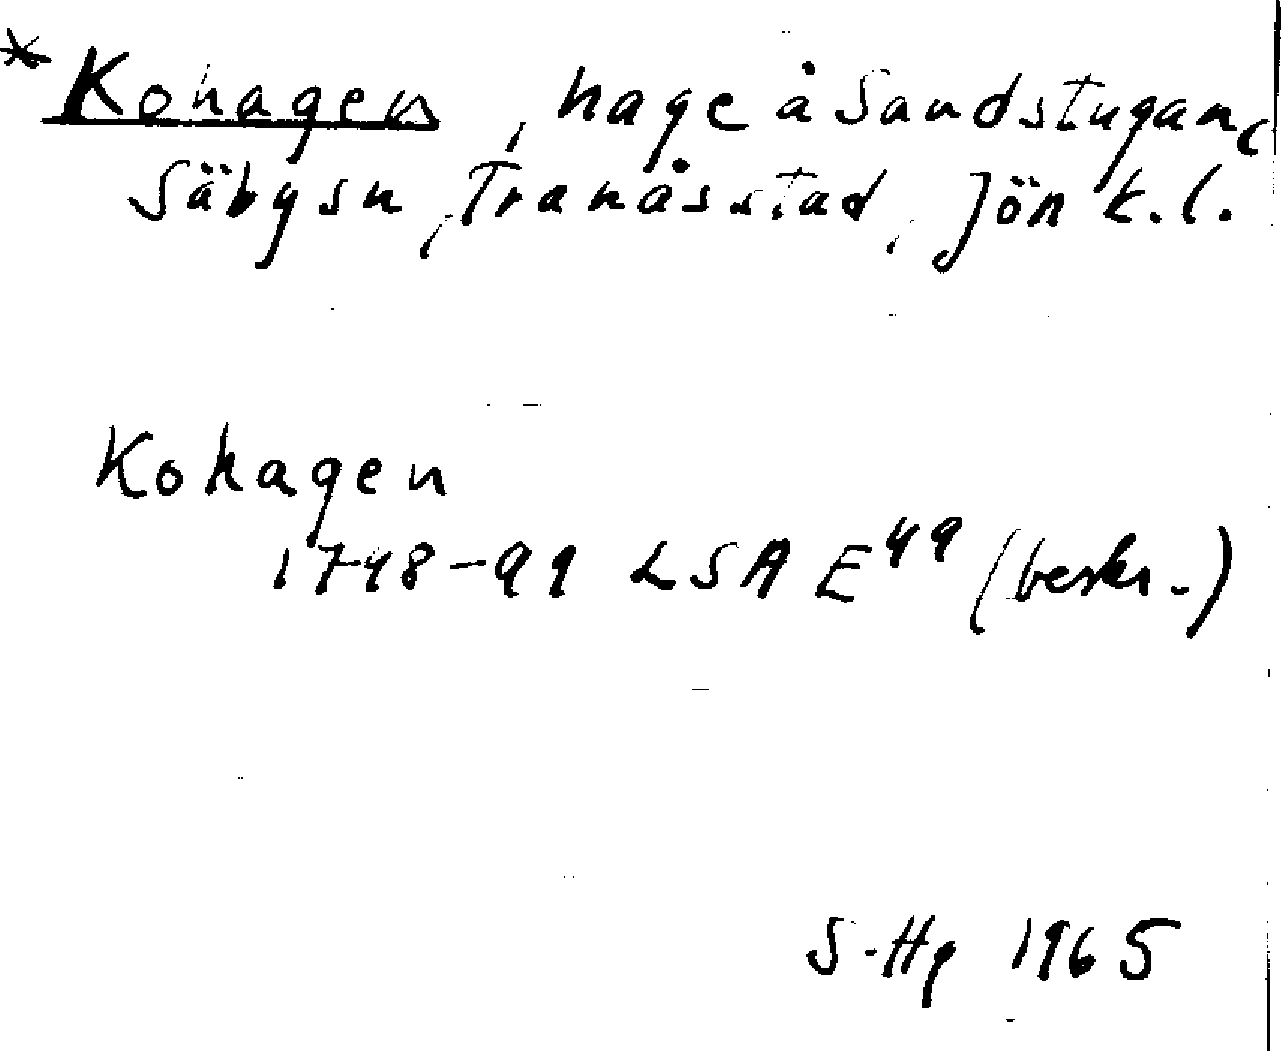 * Kohagen, hage å Sandstugan,
Säby sn, Tranås stad, Jönk. l.
Kohagen
1748-99 LSA E49 (beskr.)
S-Hg 1965